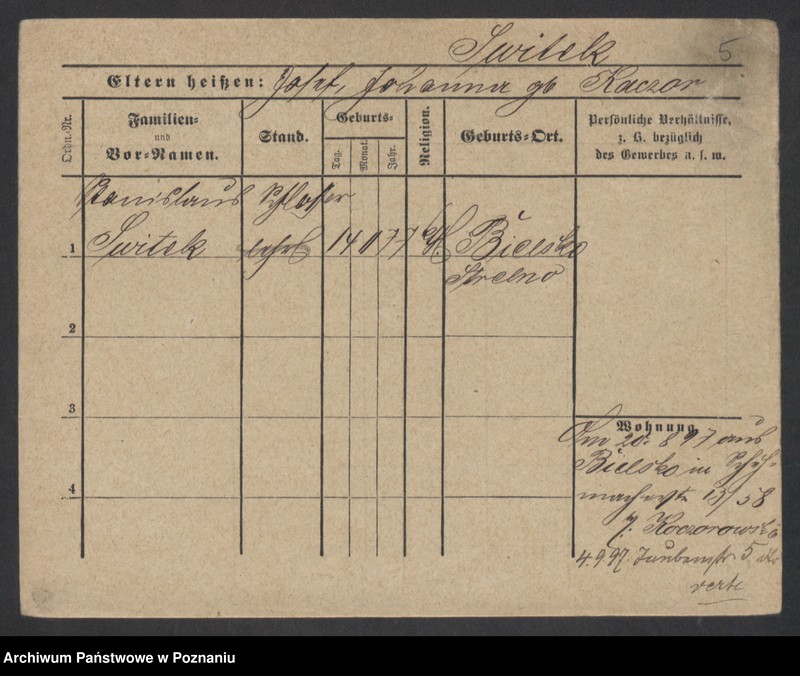 Switek 5
Eltern heißen: Josef, Johanna gb Kaczor
Ordn.-Nr.
Familien-
und
Vor-Namen.
Stand.
Geburts-
Tag.
Monat.
Jahr.
Religion.
Geburts-Ort.
Persönliche Verhältnisse,
z. B. bezüglich
des Gewerbes u. s. w.
Stanislaus Schlosser
1 Switek lehrl 14 77 Bielsko
Strelno
2
3
Wohnung
Am 20. 8 97 aus
Bielsko in Schuh-
macherstr 15/58
J. Koczorowski
4
4.9.97. Taubenstr 5
verte
Archiwum Państwowe w Poznaniu